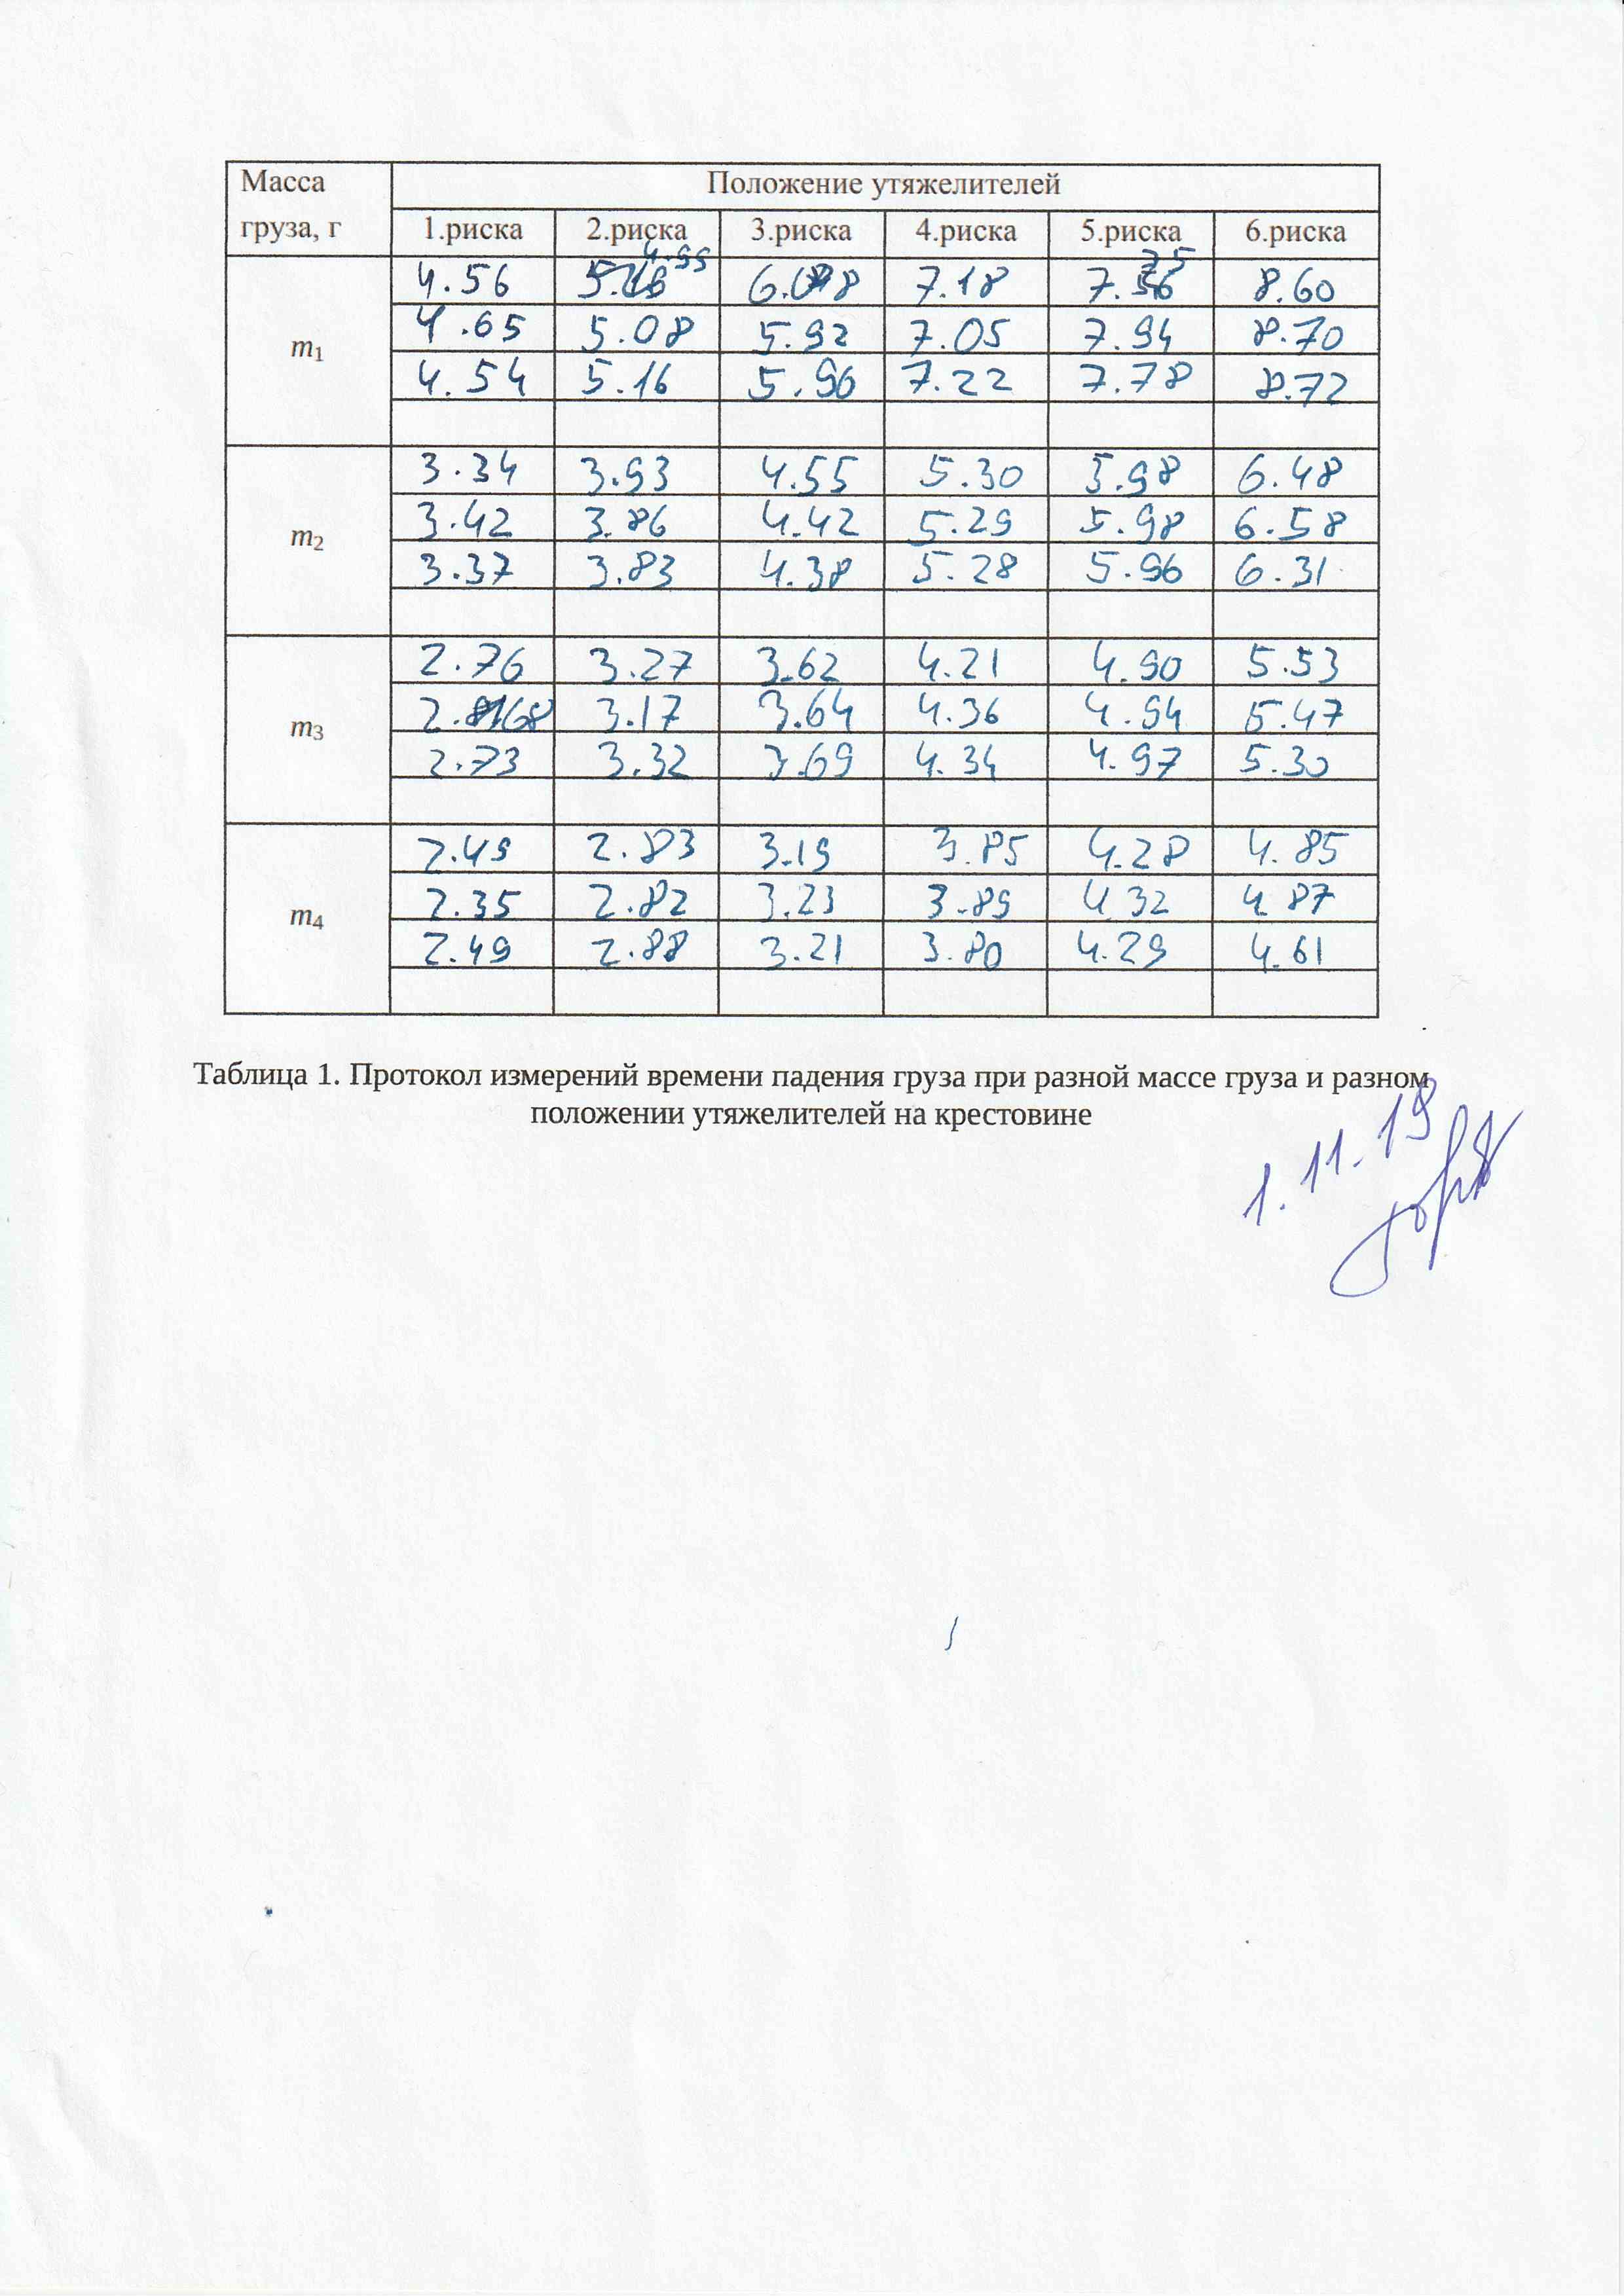 Масса груза, г Положение утяжелителей
1.риска 2.риска 3.риска 4.риска 5.риска 6.риска
4.99 75
m1 4.56 6.08 7.18 7. 8.60
4.65 5.08 5.92 7.05 7.94 8.70
4.54 5.16 5.96 7.22 7.78 8.72
m2 3.34 3.93 4.55 5.30 5.98 6.48
3.42 3.86 4.42 5.29 5.98 6.58
3.37 3.83 4.38 5.28 5.96 6.31
m3 2.76 3.27 3.62 4.21 4.90 5.53
2.68 3.17 3.64 4.36 4.94 5.47
2.73 3.32 3.69 4.34 4.97 5.30
m4 2.49 2.83 3.19 3.85 4.28 4.85
2.35 2.82 3.23 3.89 4.32 4.87
2.49 2.88 3.21 3.80 4.29 4.61
Таблица 1. Протокол измерений времени падения груза при разной массе груза и разном
положении утяжелителей на крестовине
1.11.19